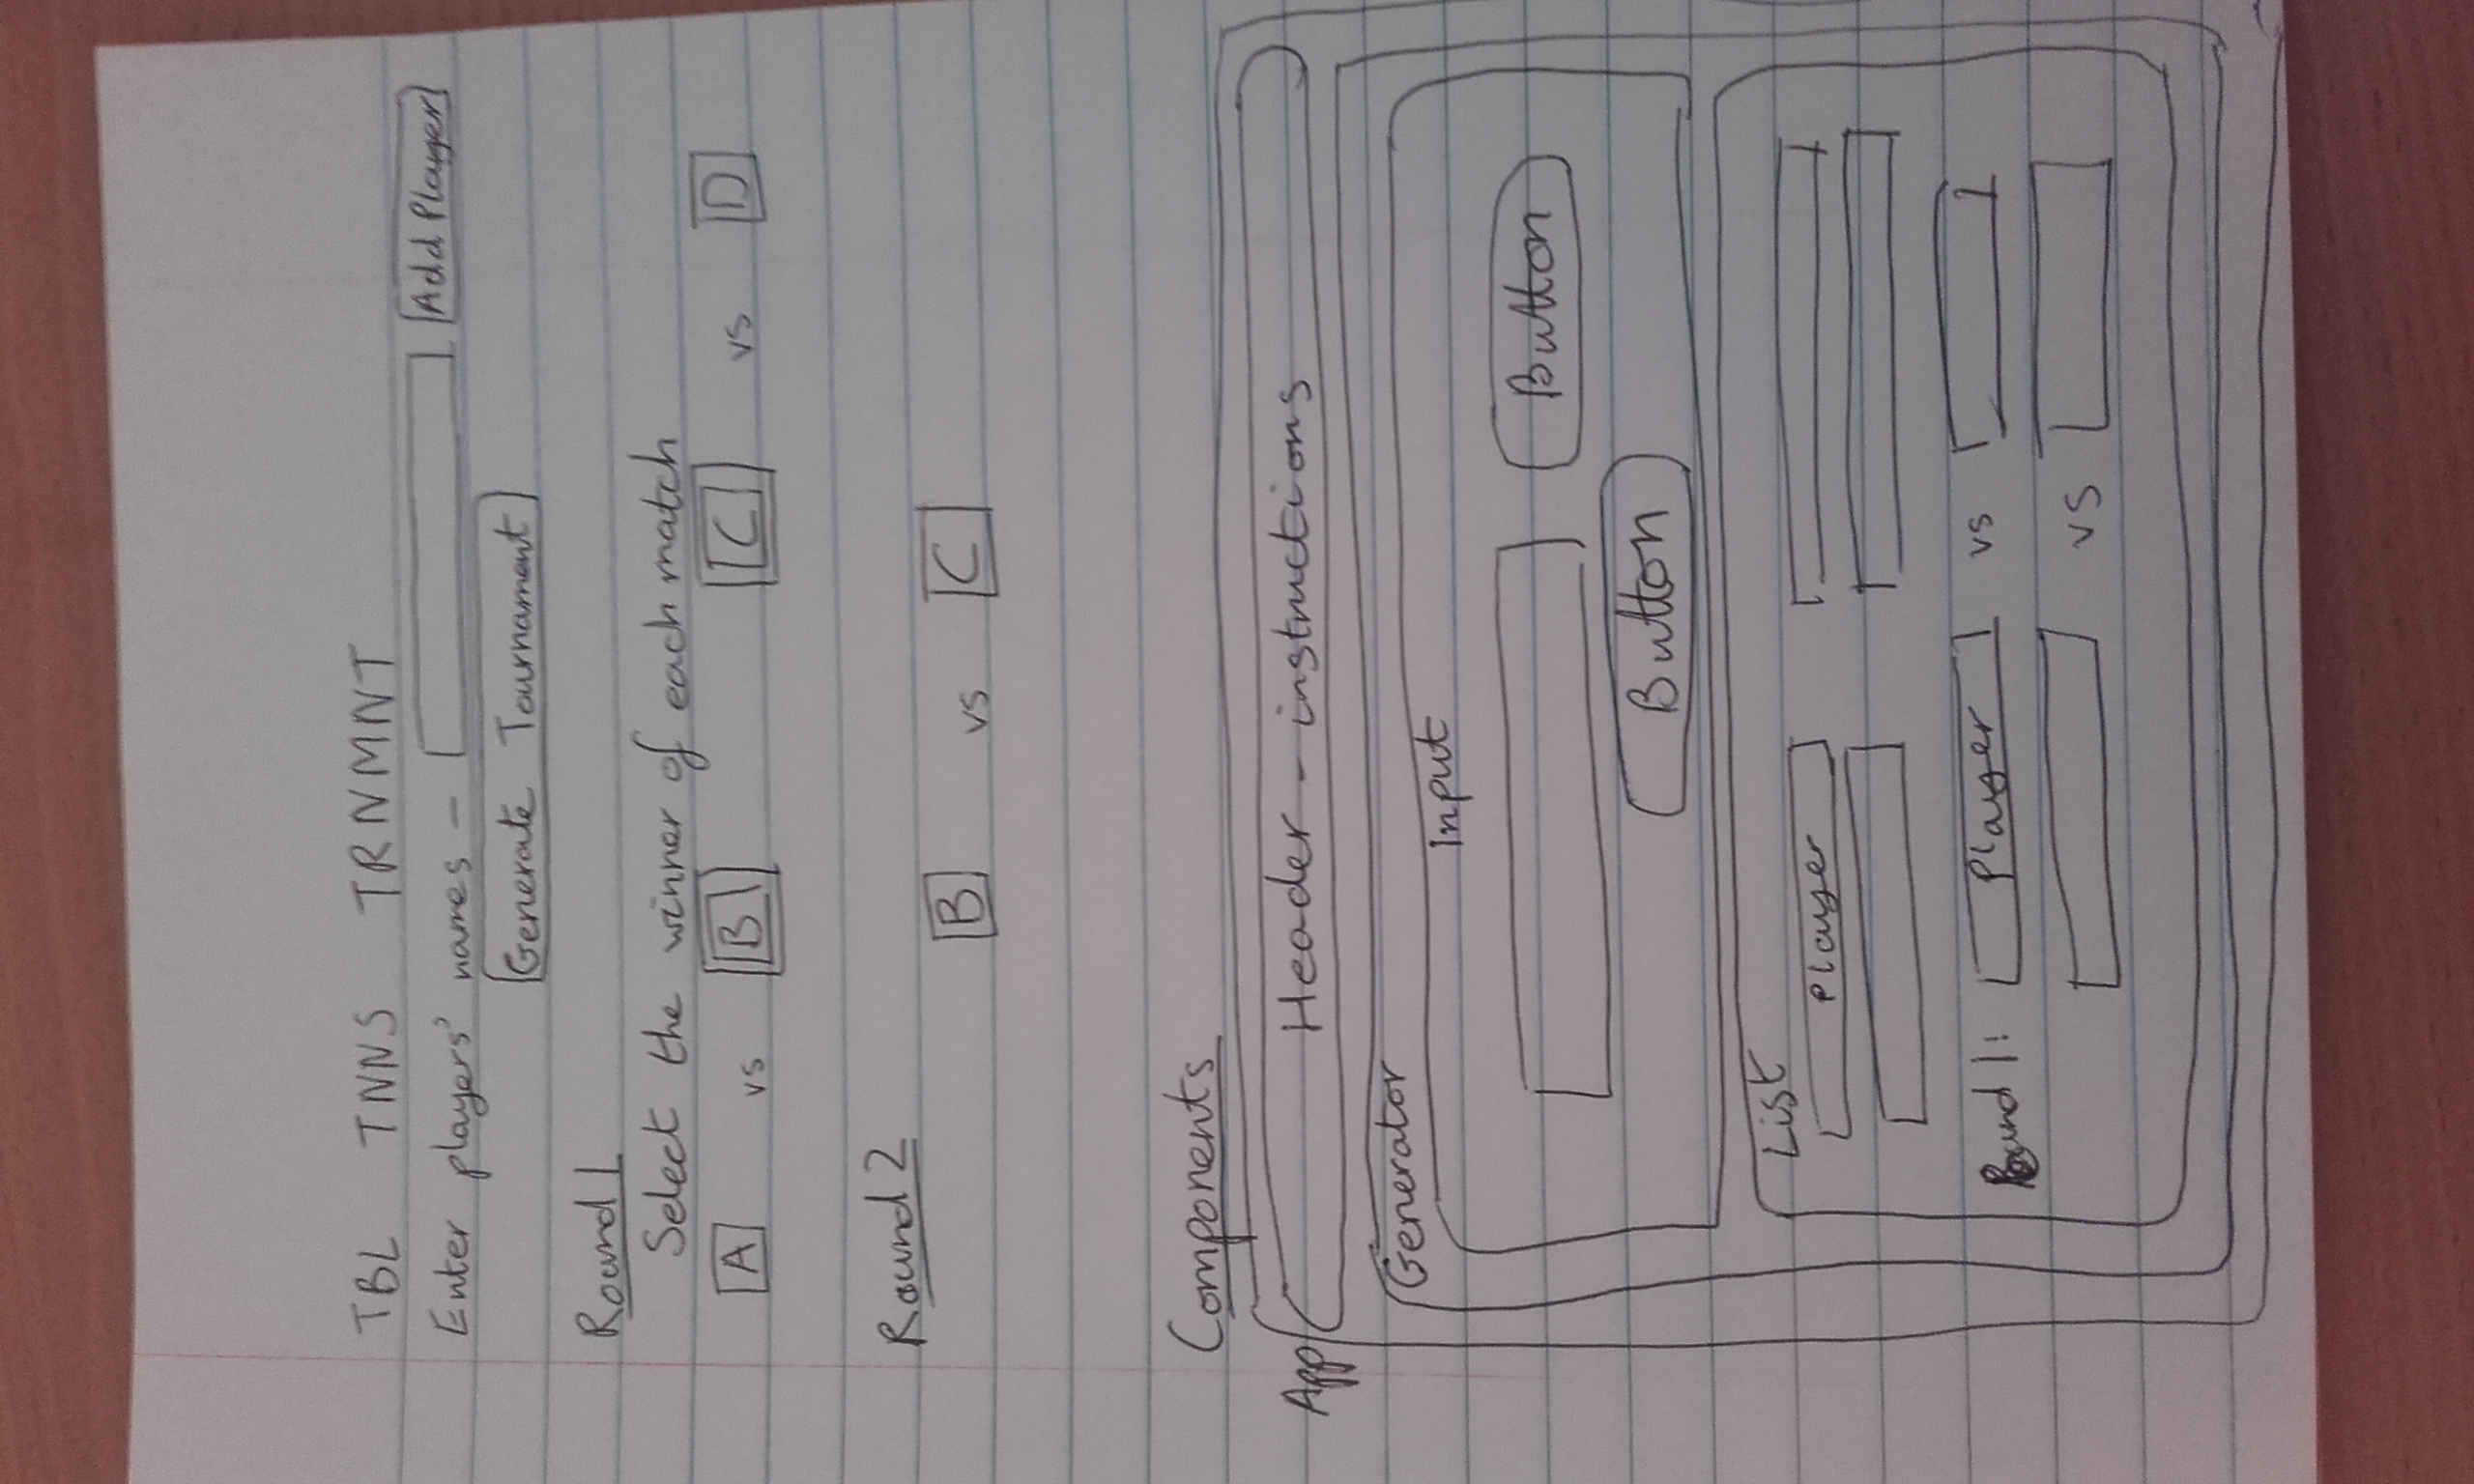 TBL TNNS TRNMNT
Enter players' names - Add Player
Generate Tournament
Round 1
Select the winner of each match
A vs B C vs D
Round 2
B vs C
Components
App Header - instructions
Generator
Input
Button
Button
List
Player
Round 1: Player vs
vs